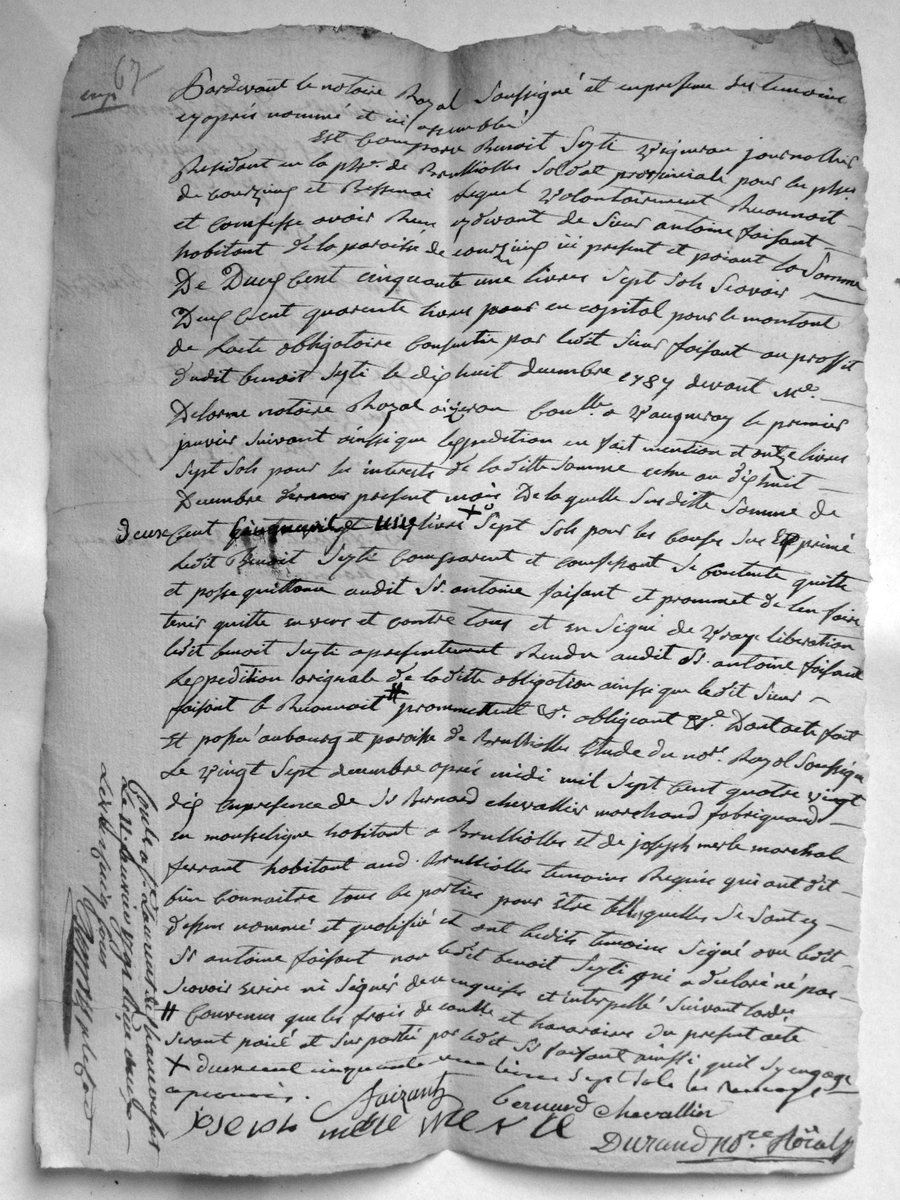 67
Pardevant le notaire Royal soussigné et en presence des temoins
cy après nommé et
est comparu Benoit Syti Vigneron journallier
Resident en la psse. de Brulliolles soldat provinciale pour les psses.
de courzieu et Bessenai lequel Volontairement Reconnoit
et confesse avoir Reçu cydevant de sieur antoine faisant
habitant de la paroisse de courzieu ici present et paiant la somme
De Deux Cent cinquante une livres sept sols scavoir
Deux Cent quarente livres pour en capital pour le montant
de Lacte obligatoire consentie par ledit sieur faisant au proffit
dudit benoit Syti le dix huit decembre 1787 devant Me.
Delorme notaire Royal a Vaugneray le premier
janvier suivant ainssi que lexpedition en fait mention et onze livres
sept sols pour les interests de laditte somme echu au dixhuit
Decembre present mois De laquelle susditte somme de
deux Cent livres sept sols pour les causes sus Exprimé
ledit Benoit Syti comparent et confessant se contente quitte
et passe quittance audit Sr. antoine faisant et prommet de len faire
tenir quitte envers et contre tous et en signe de Vraye liberation
ledit benoit Syti apresentement Rendu audit Sr. antoine faisant
Lexpedition originale de laditte obligation ainssi que ledit sieur
faisant le Reconnoit # prommettant &a. obligeant &a. Dont acte fait
Et passé au bourg et paroisse de Brulliolles Etude du nore. Royal soussigné
Le Vingt sept decembre après midi mil sept cent quatre vingt
dix en presence de Sr Bernard chevallier marchand fabriquand
en mousseligne habitant a Brulliolles et de joseph merle marechal
ferrant habitant aud. Brulliolles temoins Requis qui ont dit
bien connaitre tous les parties pour être telles quelles se sont cy
dessus nommé et qualifié et ont lesdits temoins signé avec ledit
Sr antoine faisant non ledit benoit Syti qui a declaré né pas
scavoir ecrire ni signer de ce enquis et interpellé suivant lordce
# Convenus que les frais de contlle et honoraires du present acte
seront paié et supporté par ledit Sr faisant ainssi quil sy engage
+ deux cent cinquante une livres sept sols les
approuvés.
faizant
bernard chevallier
joseph merle
Durand nore. Roïal
Contlé a St Laurent de chamousset
Le 11 janvier 1791